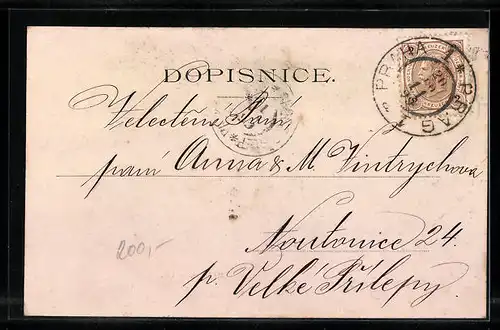 DOPISNICE.
PRAHA 1 * PRAG 1 *
Velectěná Paní,
paní Anna & M. Vintrychova
Noutonice 24.
p. Velké Přílepy.
200,-